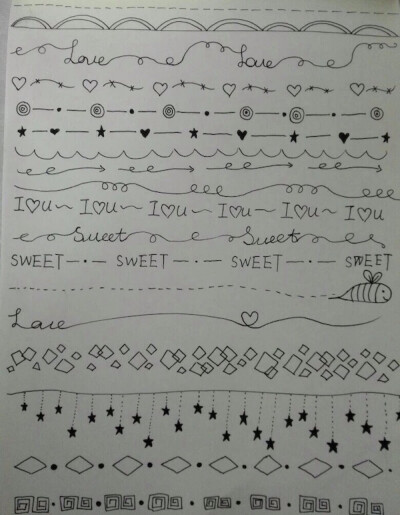 Love Love
I♡U~ I♡U~ I♡U~ I♡U~ I♡U~ I♡U
Sweet Sweet
SWEET—·—SWEET—·—SWEET—·—SWEET
Love